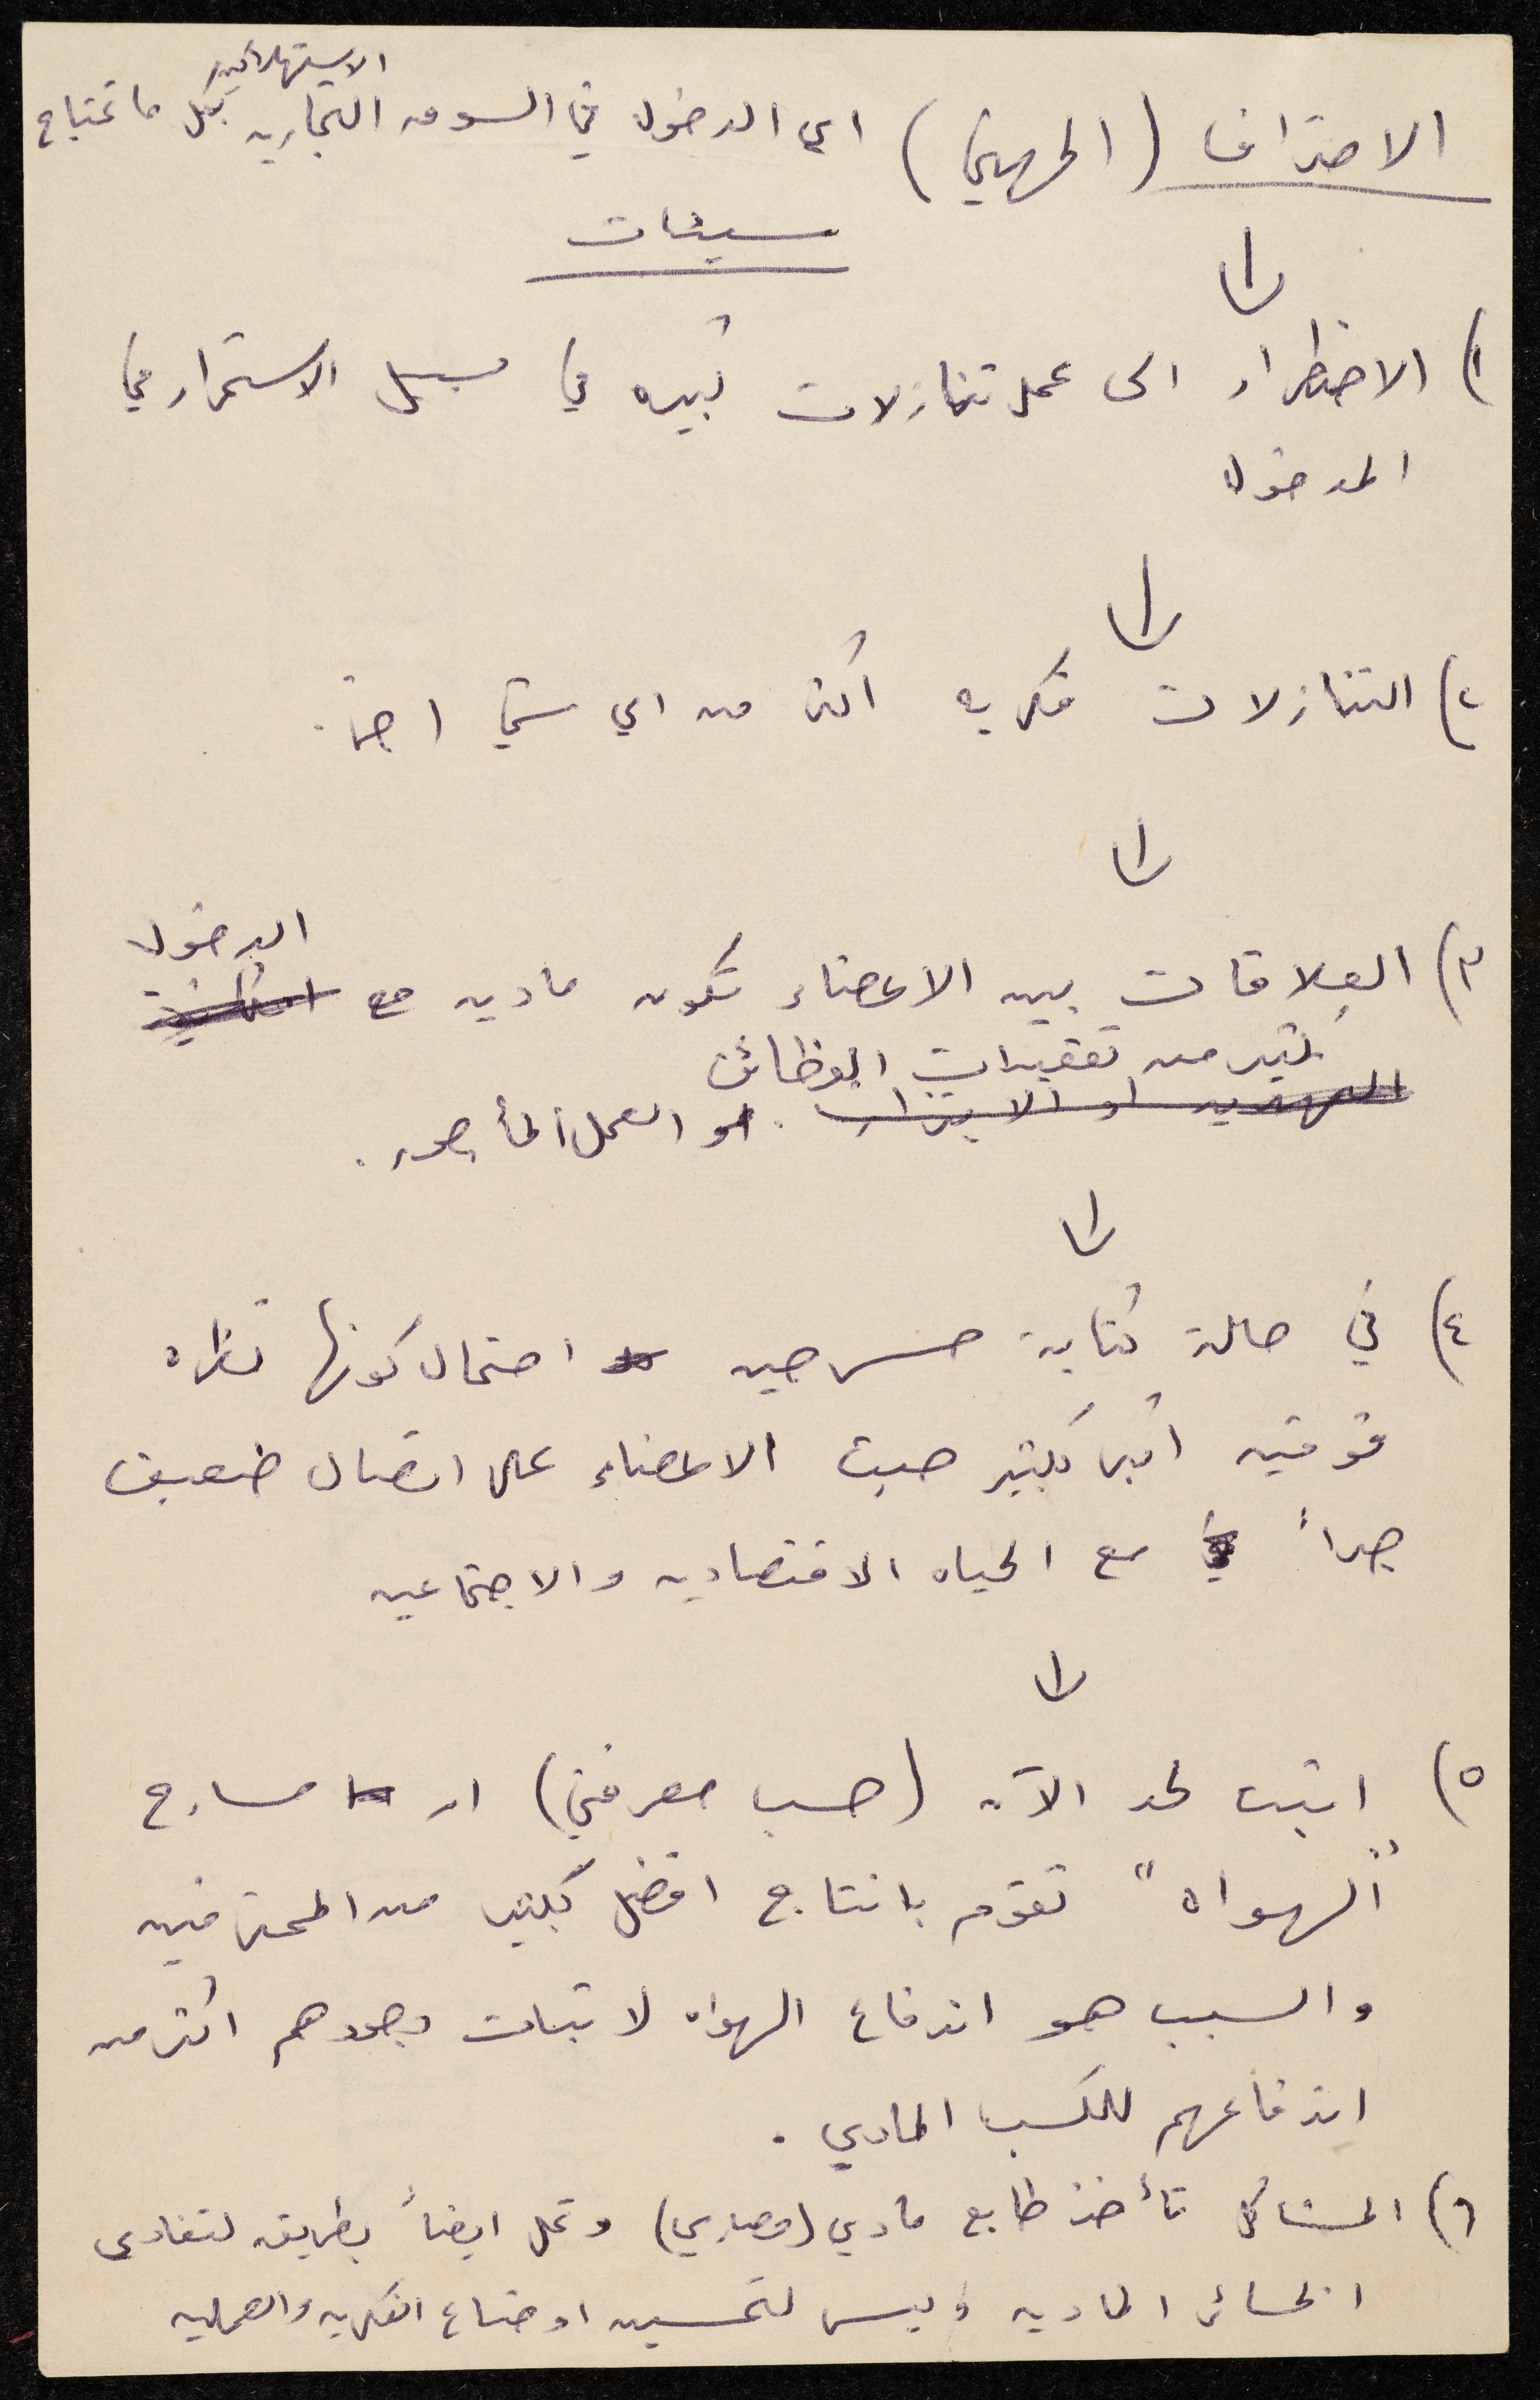 الاستهلاكيه
الاحتراف (المهني) اي الدخول في السوق التجاريه بكل ما تحتاج
سيئات
١) الاضطرار الى عمل تنازلات كبيره في سبيل الاستمرار في
الدخول
٢) التنازلات فكريه اكثر من اي شي اخر.
٣) العلاقات بين الاعضاء تكون ماديه مع الدخول
بكثير من تعقيدات الوظائف
التهديد او الابتزاز. او العمل المأجور.
٤) في حالة كتابة مسرحيه احتمال كونها نظره
فوقيه اكبر بكثير حيث الاعضاء على اتصال ضعيف
جداً مع الحياه الاقتصاديه والاجتماعيه
٥) اثبت لحد الآن (حسب معرفتي) ان مسارح
"الهواه" تقوم بانتاج افضل بكثير من المحترفين
والسبب هو اندفاع الهواه لاثبات وجودهم اكثر من
اندفاعهم للكسب المادي.
٦) المشاكل تأخذ طابع مادي (مصاري) وتحل ايضاً بطريقه لتفادي
الخسائر الماديه وليس لتحسين اوضاع الفكريه والعمليه